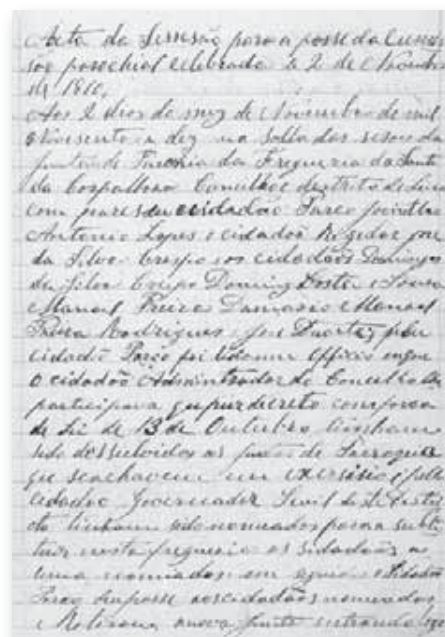 Acta da Sessão para a posse da Comis
são parochial celebrada a 2 de Novembro
de 1910.
Aos 2 dias do mez de Novembro de mil
e Novesento e dez na salla das sesões da
junta de Parochia da Freguezia da
Concelho e destrito de
com pareseu o cidadão Paroco
Antonio Lopes o cidadão Regedor jose
da Silva Crespo os cidadãos Domingos
da Silva Crespo Domingos Costa e Sousa
Manoel Freire Damasio e Manoel
Rodrigues jose Duarte, pelo
cidadão Paroco foi lido um officio em que
o cidadão Administrador do Concelho
participava que por decreto com forsa
de Lei de 13 de Outubro tinham
sido dessolvidas as juntas de Parroquia
que se achavem em exersisio e pello
cidadão Governador Sivil do destri
to tinham sido nomeados para a subte
tuir nesta freguezia os sidadãos a
sima nomiados em siguida o sidadão
Paroco deu posse aos cidadãos nomeados
e a nova junta entrando logo